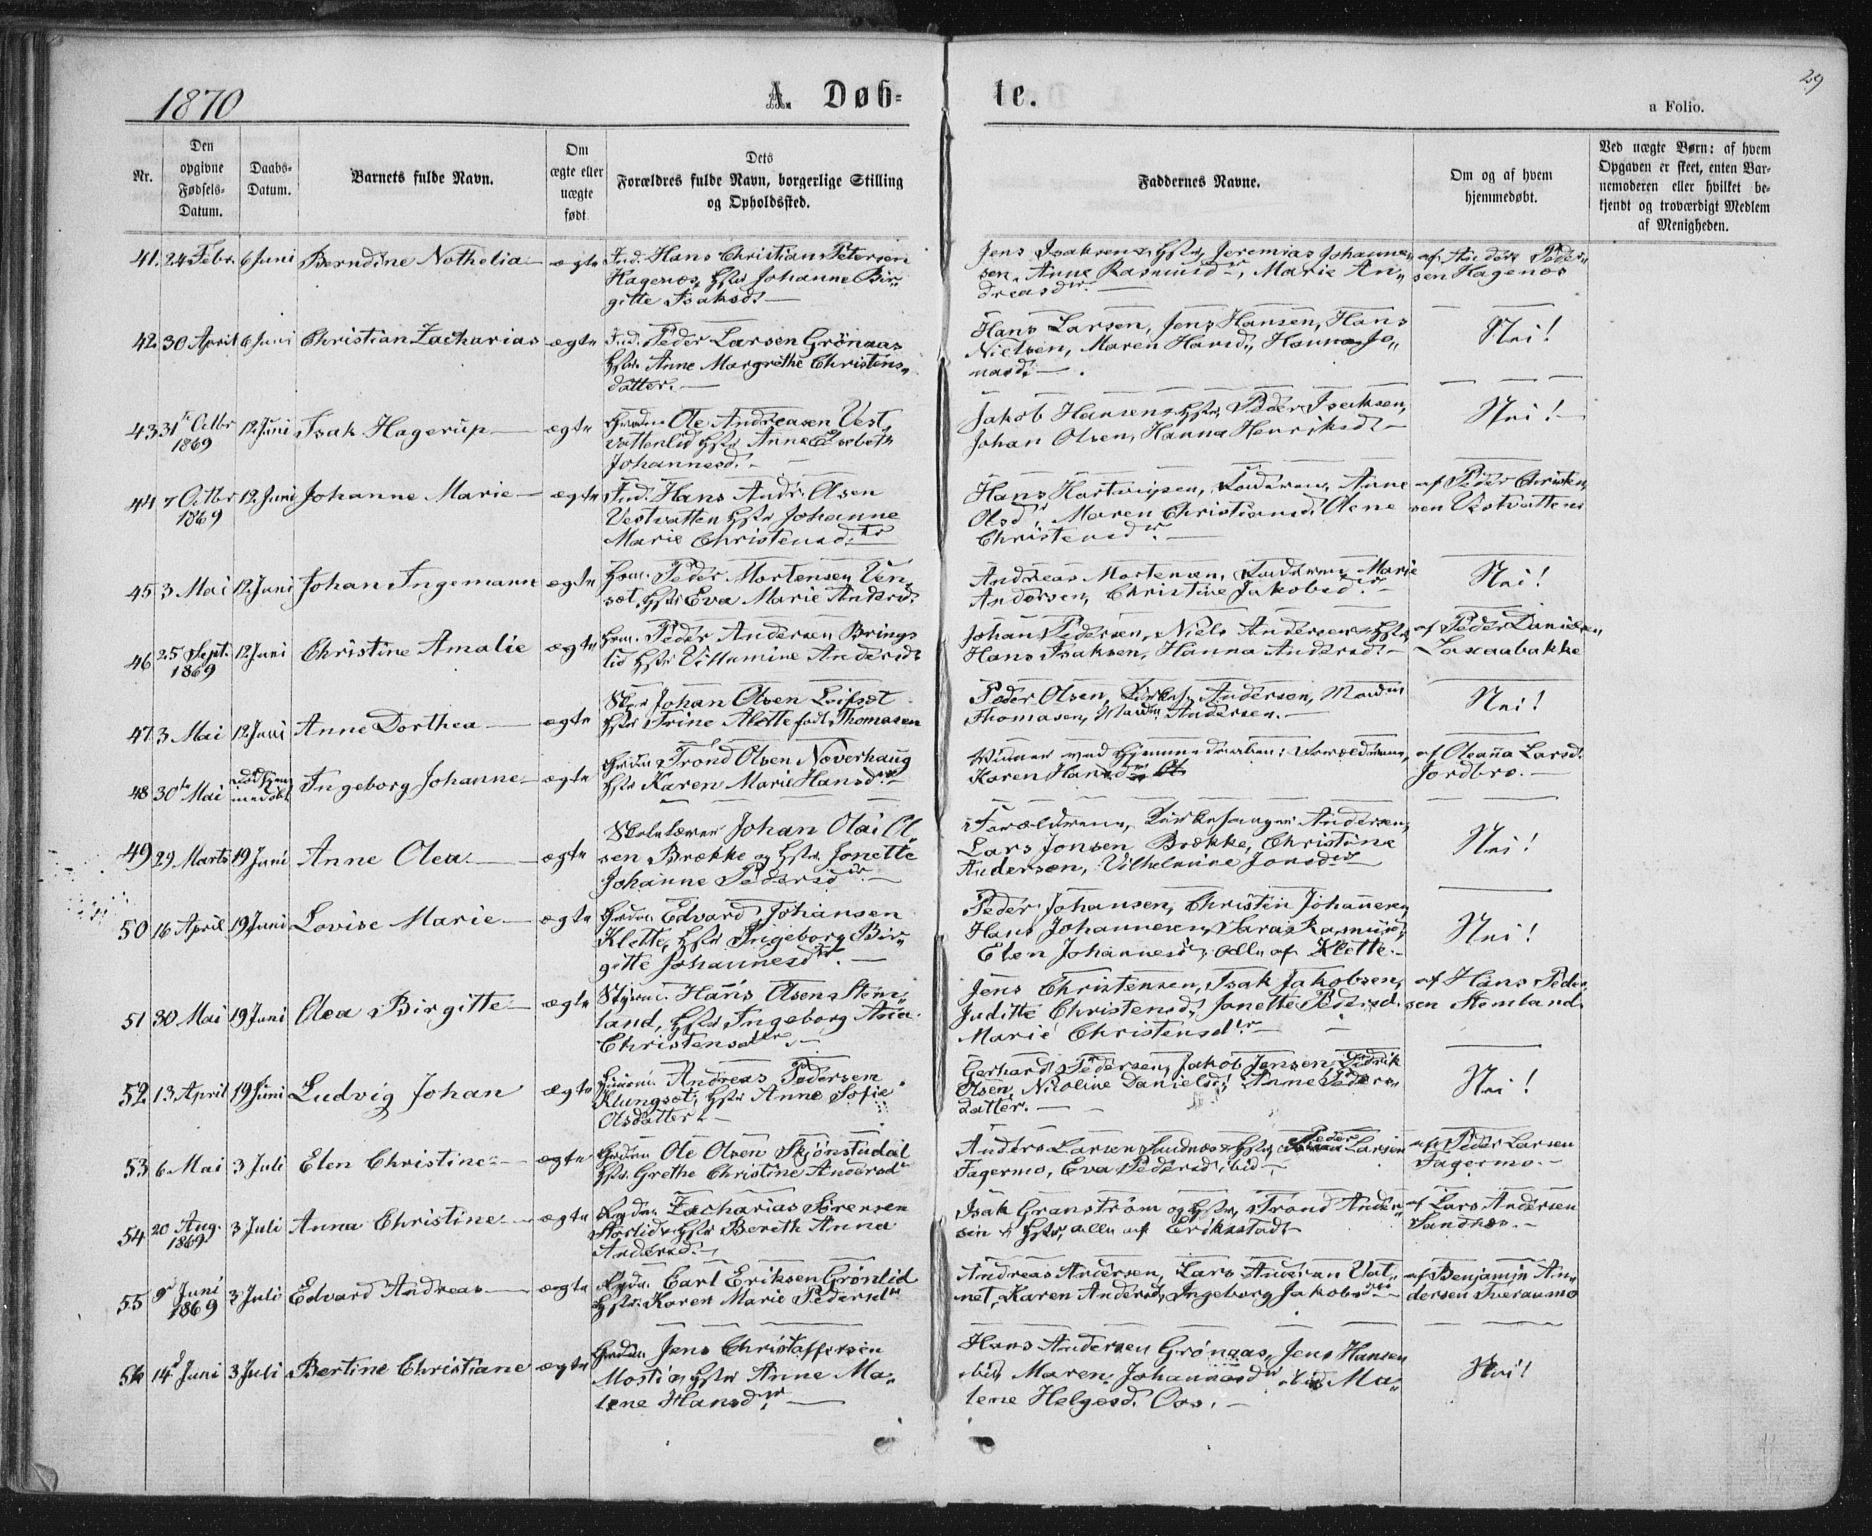 1870
A. Døb-
te.
29
a Folio.
Nr.
Den opgivne Fødsels-Datum.
Daabs-Datum.
Barnets fulde Navn.
Om ægte eller uægte født.
Dets Forældres fulde Navn, borgerlige Stilling og Opholdssted.
Faddernes Navne.
Om og af hvem hjemmedøbt.
Ved uægte Børn: af hvem Opgaven er skeet, enten Barnemoderen eller hvilket bekjendt og troværdigt Medlem af Menigheden.
41. 24 Febr. 6 Juni Berndine Nothelia ægte Ind. Hans Christian Petersen
Hagenæs, Hstr Johanne Bir„
gitte Isaksd.
Jens Isaksen & Hstr, Jeremias Johanne„
sen, Anne Rasmusdr, Marie An„
dreasdr.
af Anders Peder„
sen Hagenæs
42. 30 April 6 Juni Christian Zacharias ægte Ind. Peder Larsen Grønaas
Hstr. Anne Margrethe Christens„
datter.
Hans Larsen, Jens Hansen, Hans
Nielsen, Maren Hansd., Hanna Jo„
nasd.
Nei!
43 31te Octbr 1869 12 Juni Isak Hagerup ægte Grdm. Ole Andreasen Vest„
vattenlid Hstr Anne Elsebeth
Johannesd.
Jakob Hansen & Hstr, Peder Isaksen,
Johan Olsen, Hanna Henriksd.
Nei!
44 7 Octbr 1869 12. Juni Johanne Marie ægte Ind. Hans Andr. Olsen
Vestvatten Hstr Johanne
Marie Christensd.
Hans Hartvigsen, Anne
Olsd, Maren Christiansd, Olene
Christensdr.
af Peder Christen„
sen Vestvatten
45 3 Mai 12 Juni Johan Ingemann ægte Hsm. Peder Mortensen Ven„
set, Hstr Eva Marie Andersd.
Andreas Mortensen, Marie
Andersen, Christine Jakobsd.
Nei!
46 25 Sept 1869 12 Juni Christine Amalie ægte Hsm. Peder Andersen Brings
lid Hstr Villumine Andersd.
Johan Pedersen, Niels Andersen & Hstr,
Hans Isaksen, Hanna Andersd.
af Peder Danielsen
Laxaabakke
47 3 Mai 12 Juni Anne Dorthea ægte Johan Olsen Leifset
Hstr Trine Alette født Thomasen
Peder Olsen, Kirkes. Andersen,
Thomasen, Andersen.
Nei!
48 30te Mai ægte Ingeborg Johanne Grdm. Trond Olsen Nøverhaug
Hstr Karen Marie Hansdr
Vidner ved Hjemmedaaben: Forældrene,
Karen Hansdr
af Oleana Larsd.
Jordbro.
49 29 Marts 19 Juni Anne Olea ægte Skolelærer Johan Olai Ol„
sen Brække og Hstr. Jonette
Johanne Pedersdr
Forældrene, Kirkesanger Andersen,
Lars Jonsen Brække, Christine
Andersen, Vilhelmine Jonsdr
Nei!
50 16 April 19 Juni Lovise Marie ægte Grdm. Edvard Johansen
Klette, Hstr Ingeborg Bir„
gitte Johannesdr.
Peder Johansen, Christen Johannesen,
Hans Johannesen, Sara Rasmusd,
Elen Johannesd, alle af Klette.
Nei!
51 30 Mai 19 Juni Olea Birgitte ægte Styrm. Hans Olsen Stem„
land, Hstr Ingeborg Ana
Christensdtr.
Jens Christensen, Isak Jakobsen,
Juditte Christensd., Janette Pedersd.
Marie Christensdtr
af Hans Peder„
sen Stemland.
52 13 April 19 Juni Ludvig Johan ægte Andreas Pedersen
Klungset, Hstr Anne Sofie
Olsdatter.
Gerhard Pedersen, Jakob Jensen, Fredrik
Olsen, Nicoline Danielsd., Anne Peders„
datter.
Nei!
53 6 Mai 3 Juli Elen Christine ægte Grdm Ole Olsen Skjønstudal
Hstr. Grethe Christine Andersdr
Anders Larsen Sandnes & Hstr, Peder Larsen
Fagermo, Eva Pedersd, ibid
af Peder Larsen
Fagermo.
54 20 Aug. 1869 3 Juli Anna Christine ægte Rydm. Zacharias Sørensen
Storlid & Hstr Bereth Anna
Andersd.
Isak Granstrøm og Hstr, Trond Ander„
sen & Hstr, alle af Eriksstadt
af Lars Andersen
Sandnes.
55 9d Juni 1869 3 Juli Edvard Andreas ægte Rydn. Carl Eriksen Grønlid
Hstr. Karen Marie Pedersdr
Andreas Andersen, Lars Andersen Vat„
net, Karen Andersd, Ingeborg Jakobsdr
af Benjamin An„
dersen Tveraamo
56 14d Juni 3 Juli Bertine Christiane ægte Grdm Jens Christoffersen
Mosti og Hstr Anne Ma„
lene Hansdtr.
Hans Andersen Grønaas, Jens Hansen
ibid, Maren Johannesdr ibid, Ma„
lene Helgesd. Oss.
Nei!